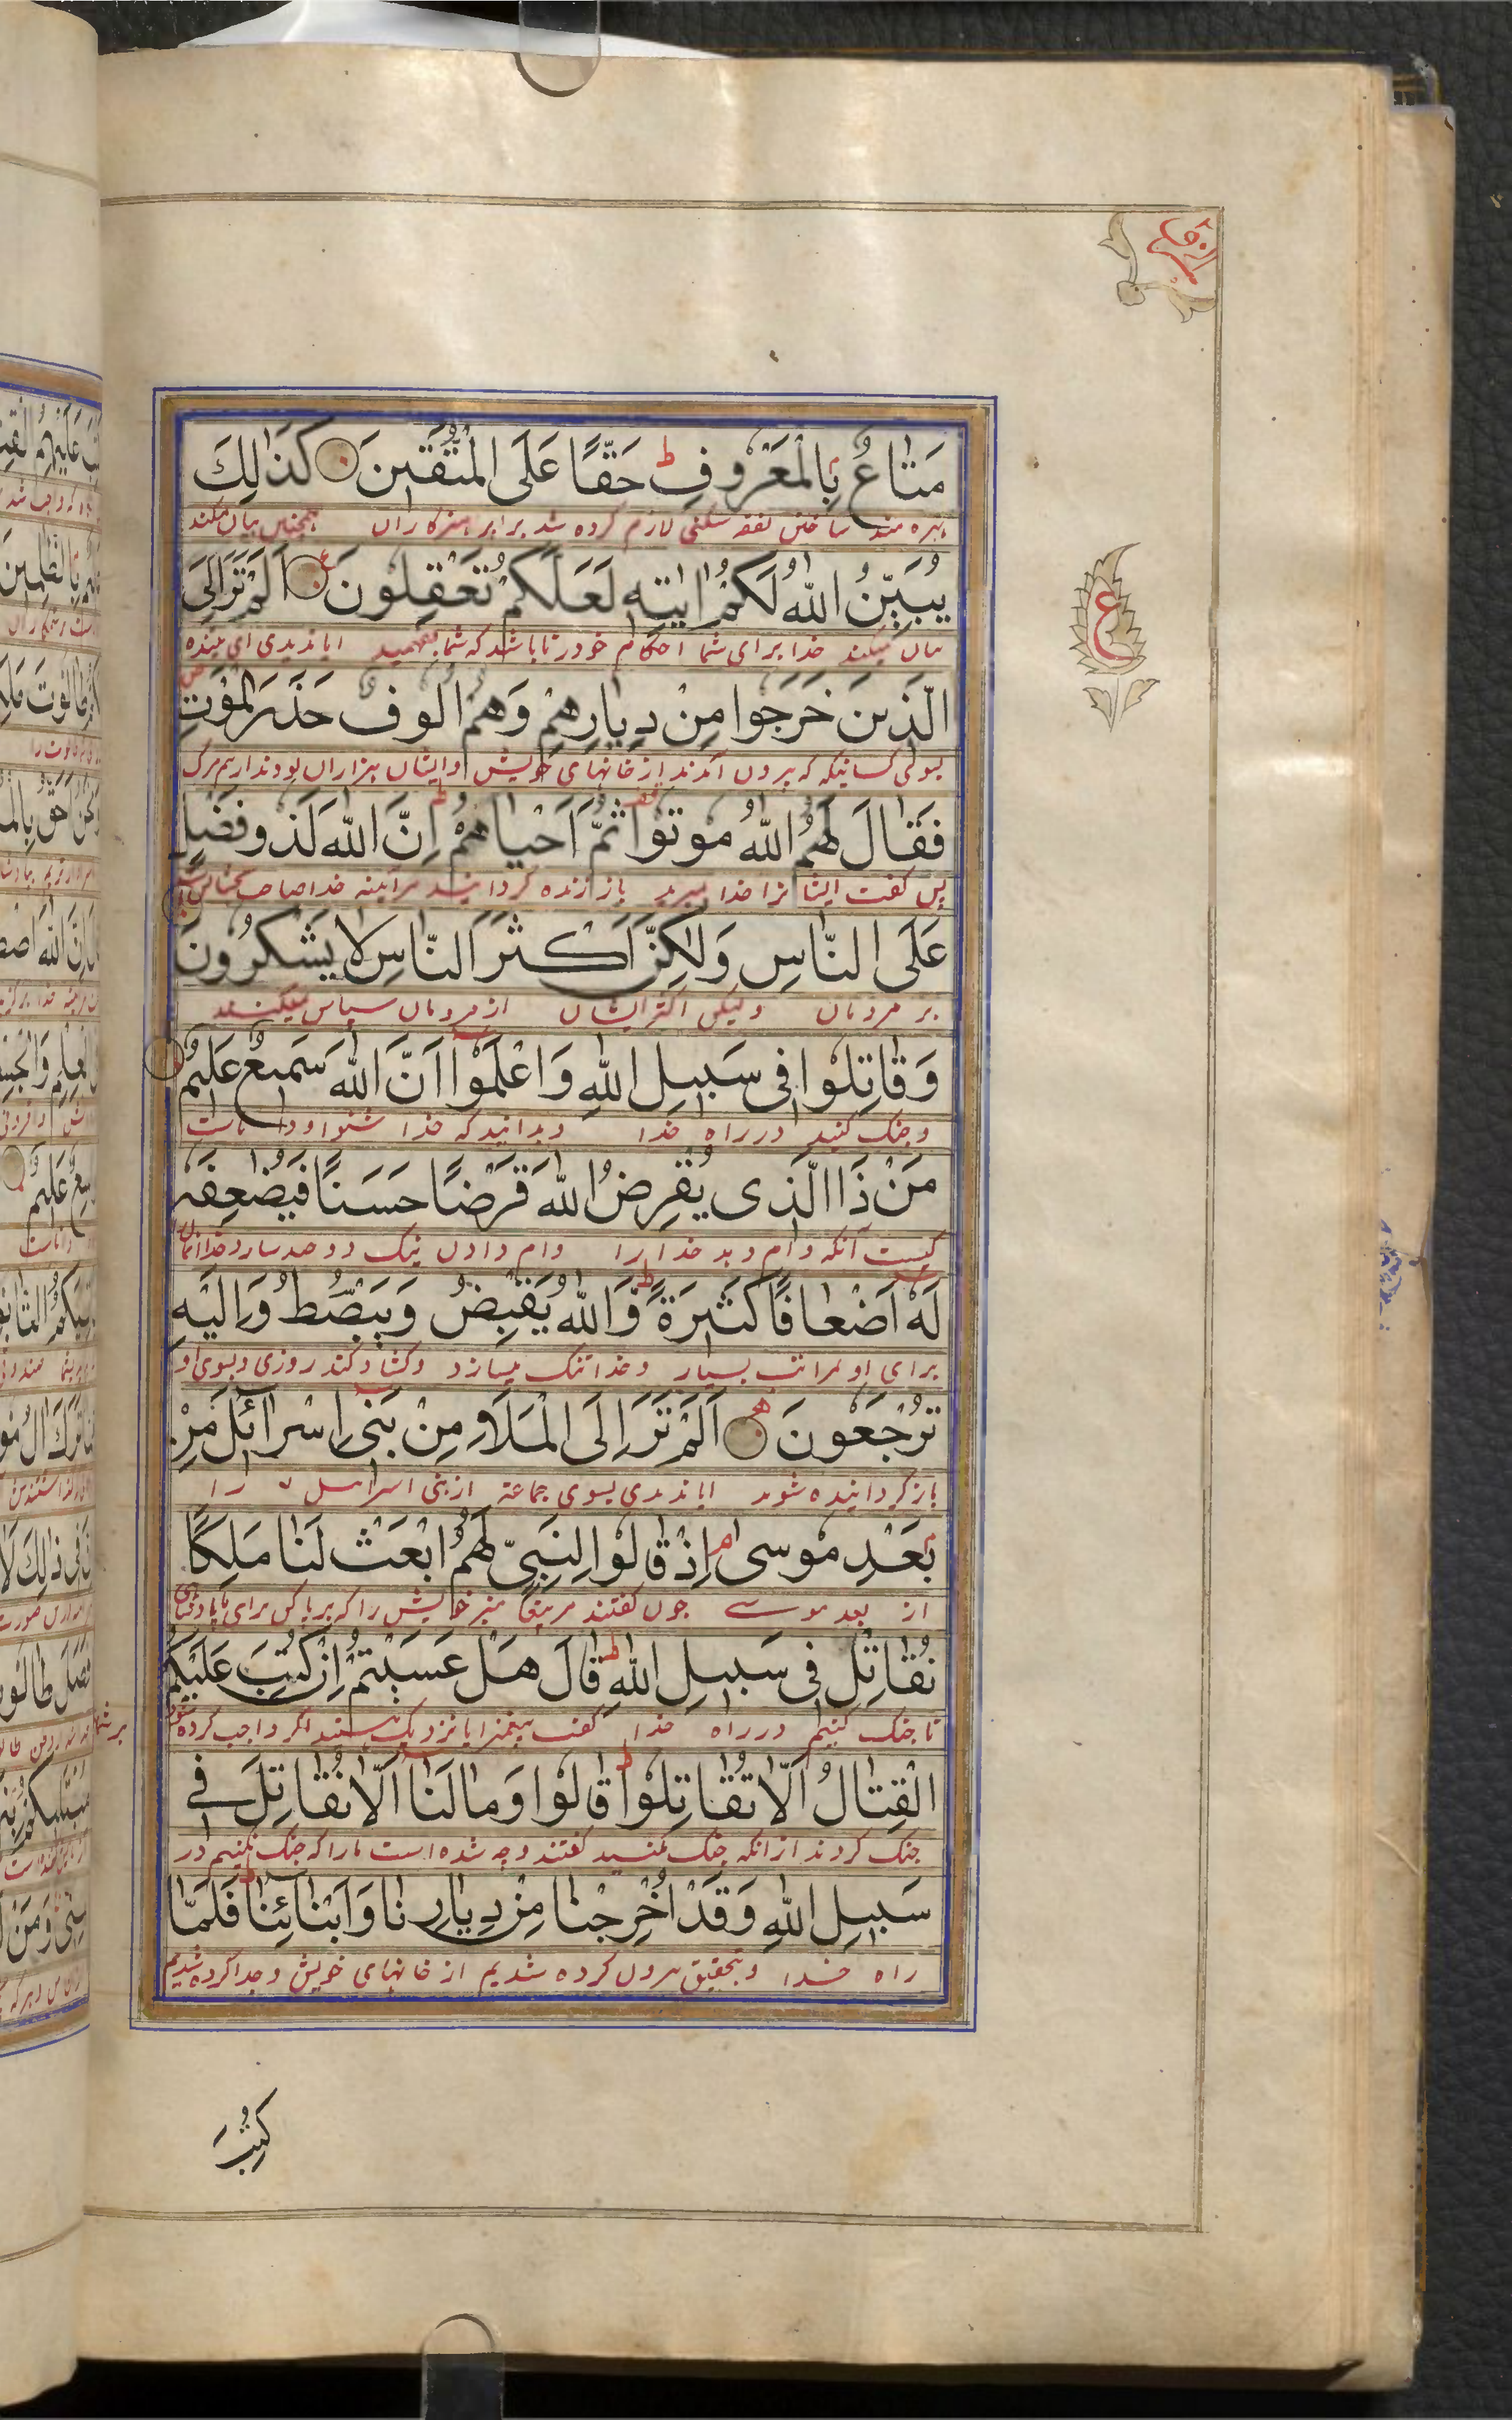 مَتَاعٌ بِالْمَعْرُوفِ ط حَقًّا عَلَى الْمُتَّقِينَ كَذَٰلِكَ
بهره مند ساختن نفقه سکنی لازم کرده شد بر پرهیزکاران همچنین بیان میکند
يُبَيِّنُ اللّٰهُ لَكُمْ اٰيٰتِهٖ لَعَلَّكُمْ تَعْقِلُونَ اَلَمْ تَرَ اِلَى
بیان میکند خدا برای شما احکام خود را تا باشد که شما بفهمید ایا ندیدی ای بیننده
الَّذِينَ خَرَجُوا مِنْ دِيَارِهِمْ وَهُمْ اُلُوفٌ حَذَرَ الْمَوْتِ
بسوی کسانیکه که بیرون آمدند از خانهای خویش و ایشان هزاران بودند از بیم مرگ
فَقَالَ لَهُمُ اللّٰهُ مُوتُوا ثُمَّ اَحْيَاهُمْ ط اِنَّ اللّٰهَ لَذُو فَضْلٍ
پس گفت ایشانرا خدا بمیرید باز زنده گردانید هر آینه خدا صاحب
عَلَى النَّاسِ وَلٰكِنَّ اَكْثَرَ النَّاسِ لَا يَشْكُرُونَ
بر مردمان ولیکن اکثر ایشان از مردمان سپاس نمیکنند
وَقَاتِلُوا فِي سَبِيلِ اللّٰهِ وَاعْلَمُوا اَنَّ اللّٰهَ سَمِيعٌ عَلِيمٌ
و جنک کنید در راه خدا و بدانید که خدا شنوا و داناست
مَنْ ذَا الَّذِي يُقْرِضُ اللّٰهَ قَرْضًا حَسَنًا فَيُضٰعِفَهٗ
کیست آنکه وام دهد خدا را وام دادن نیک دو چند سازد خدا
لَهٗ اَضْعَافًا كَثِيرَةً ط وَاللّٰهُ يَقْبِضُ وَيَبْصُطُ وَاِلَيْهِ
برای او مراتب بسیار و خدا تنک میسازد و کشاد کند روزی و بسوی او
تُرْجَعُونَ اَلَمْ تَرَ اِلَى الْمَلَاِ مِنْ بَنِي اِسْرَائِلَ مِنْ
باز گردانیده شوید ایا ندیدی بسوی جماعة از بنی اسرائیل را
بَعْدِ مُوسٰى م اِذْ قَالُوا لِنَبِيٍّ لَهُمُ ابْعَثْ لَنَا مَلِكًا
از بعد موسے چون گفتند مر پیغامبر خویش را که برپا کن برای ما پادشاهی
نُقَاتِلْ فِي سَبِيلِ اللّٰهِ ط قَالَ هَلْ عَسَيْتُمْ اِنْ كُتِبَ عَلَيْكُمُ
تا جنک کنیم در راه خدا گفت پیغمبر ایا نزدیک هستید اگر واجب کرده شود
بر شما
الْقِتَالُ اَلَّا تُقَاتِلُوا ط قَالُوا وَمَا لَنَا اَلَّا نُقَاتِلَ فِي
جنک کردند از انکه جنک نکنید گفتند و چه شده است ما را که جنک نکنیم در
سَبِيلِ اللّٰهِ وَقَدْ اُخْرِجْنَا مِنْ دِيَارِنَا وَاَبْنَائِنَا ط فَلَمَّا
راه خدا و بتحقیق بیرون کرده شدیم از خانهای خویش و جدا کرده شدیم
ع
كُتِبَ